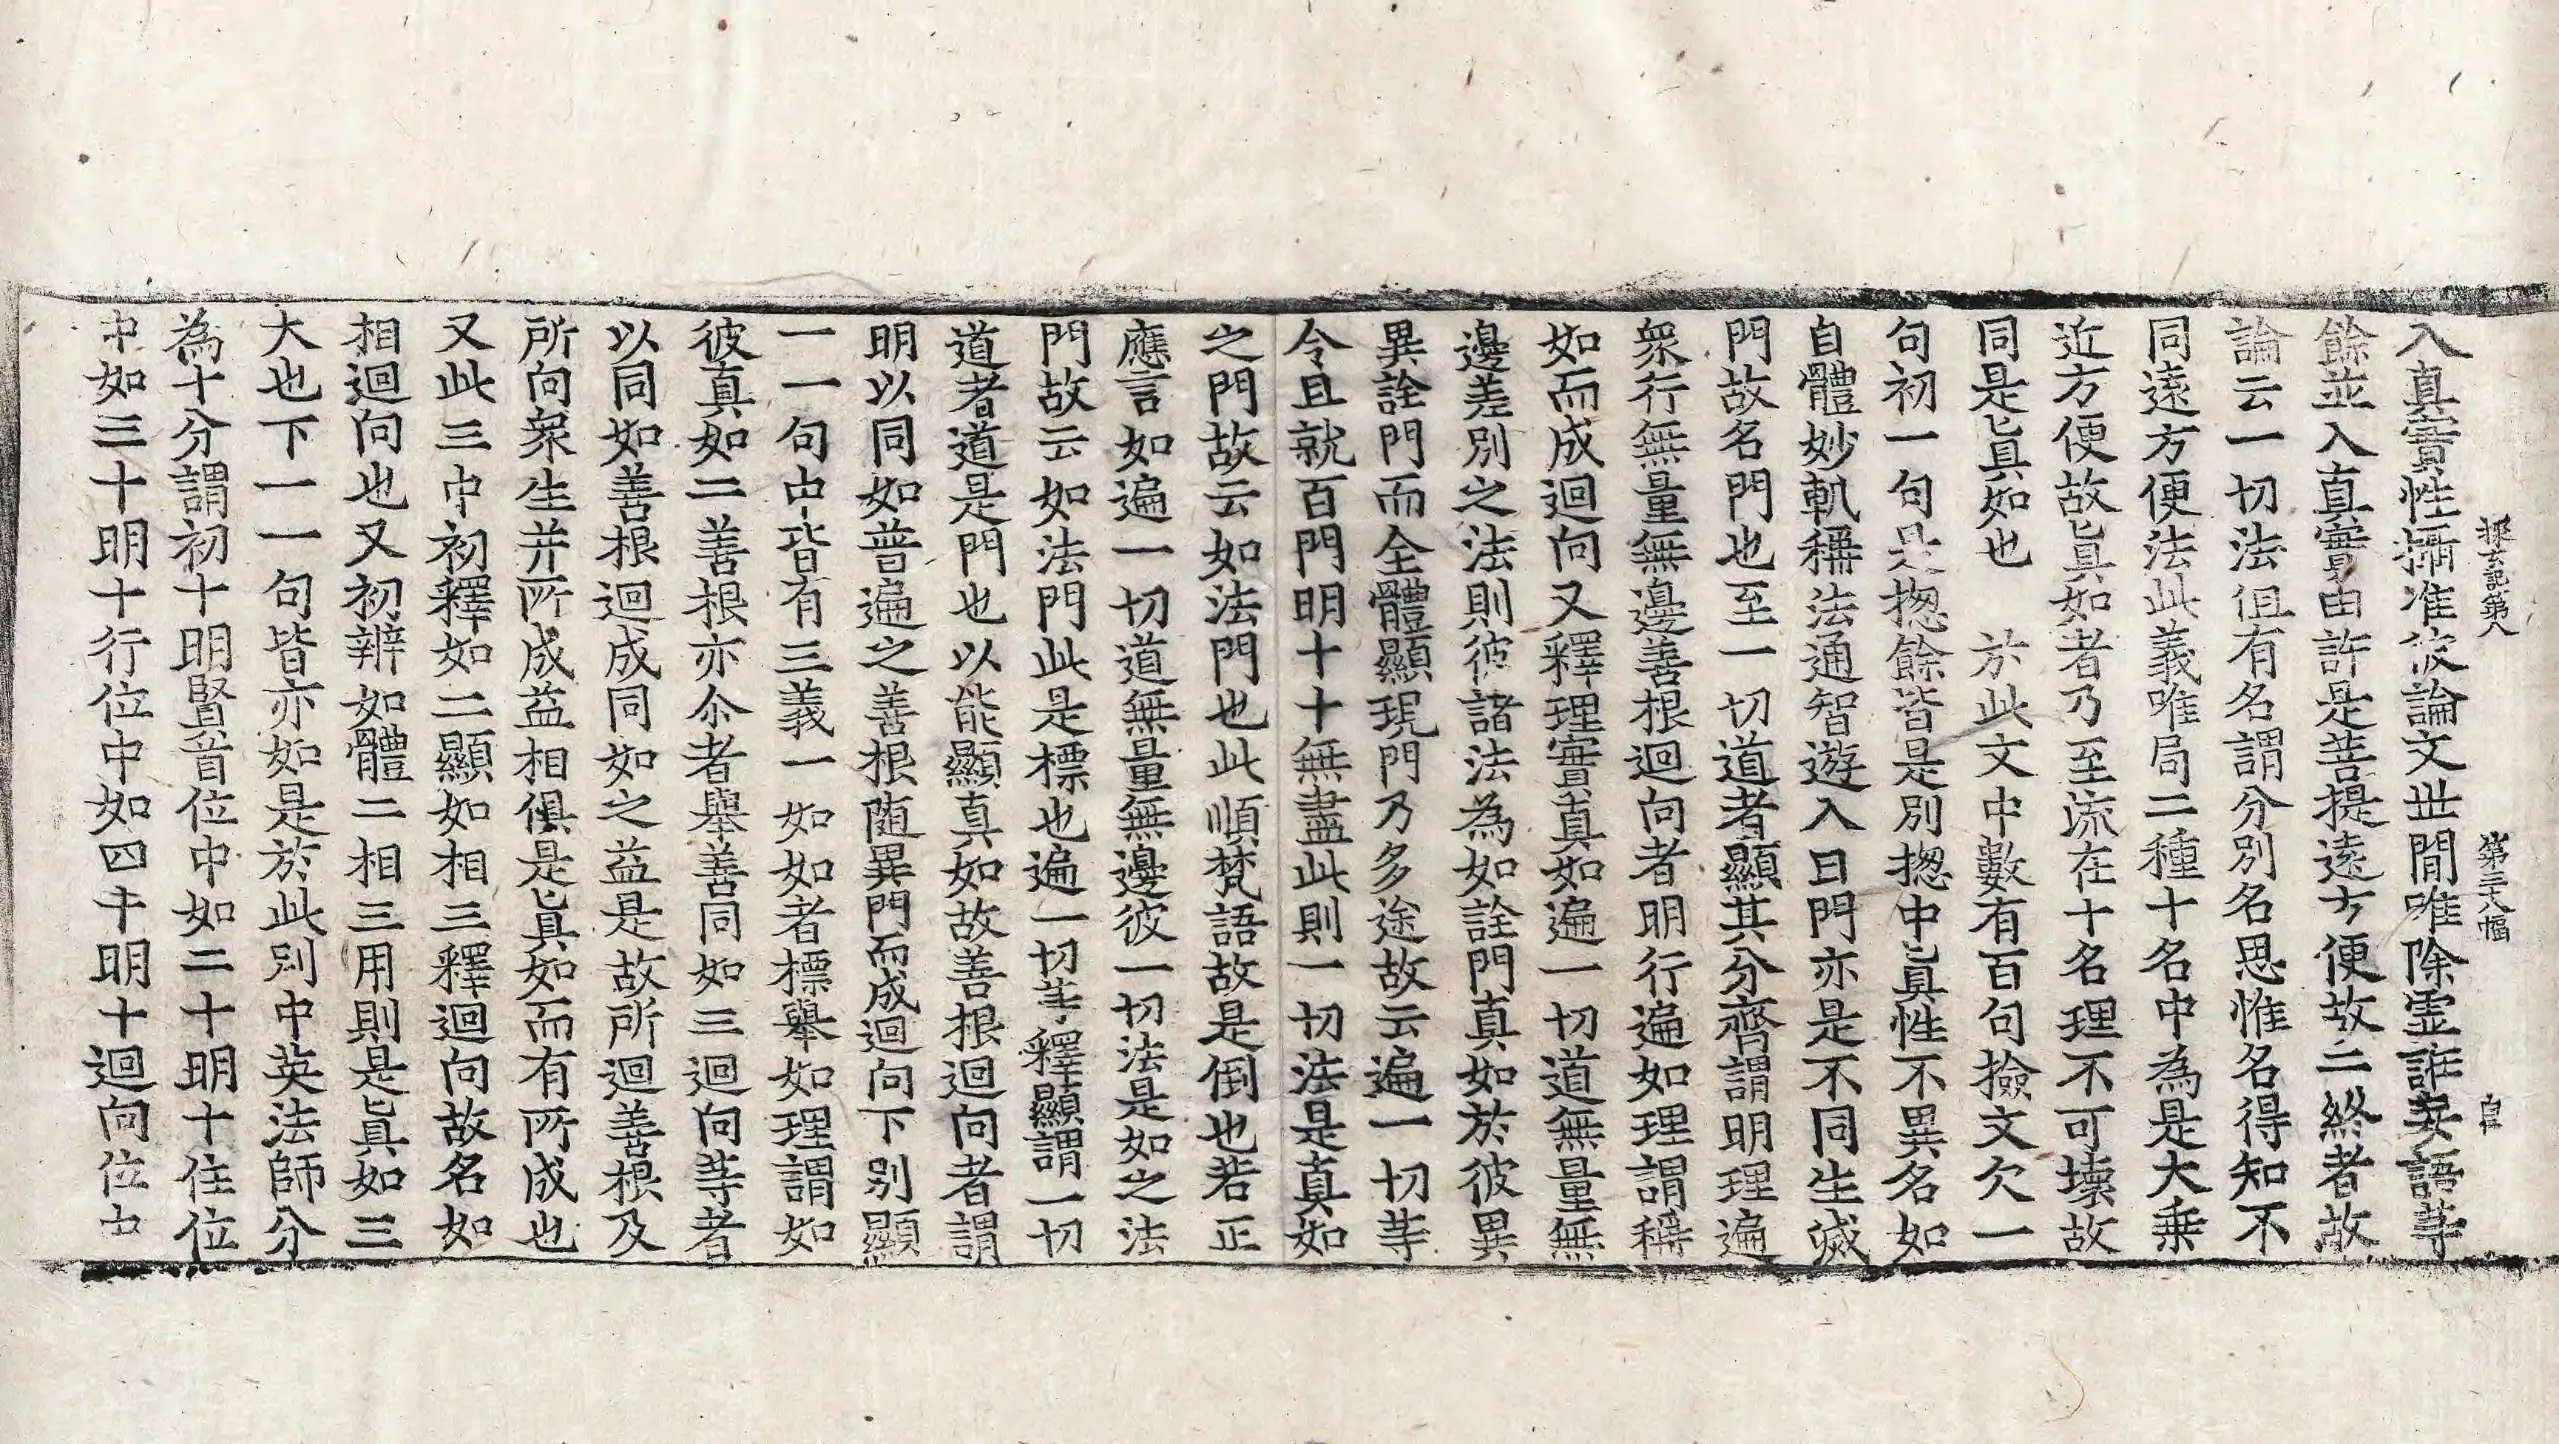 探玄記第八 第三十八幅 自
入真實性攝准彼論文世間唯除虛誑妄語等
餘並入直實由許是菩提遠方便故二終者故
論云一切法伹有名謂分別名思惟名得知不
同遠方便法此義唯局二種十名中為是大乗
近方便故真如者乃至流在十名理不可壊故
同是真如也 於此文中數有百句撿文欠一
句初一句是揔餘皆是別揔中真性不異名如
自體妙軌稱法通智遊入曰門亦是不同生滅
門故名門也至一切道者顯其分齊謂明理遍
衆行無量無邊善根迴向者明行遍如理謂稱
如而成迴向又釋理實真如遍一切道無量無
邊差別之法則彼諸法為如詮門真如於彼異
異詮門而全體顯現門乃多途故云遍一切等
令且就百門明十十無盡此則一切法是真如
之門故云如法門也此順梵語故是倒也若正
應言如遍一切道無量無邊彼一切法是如之法
門故云如法門此是標也遍一切等釋顯謂一切
道者道是門也以能顯真如故善根迴向者謂
明以同如普遍之善根随異門而成迴向下別顯
一一句中皆有三義一如如者標舉如理謂如
彼真如二善根亦尒者舉善同如三迴向等者
以同如善根迴成同如之益是故所迴善根及
所向衆生并所成益相俱是真如而有所成也
又此三中初釋如二顯如相三釋迴向故名如
相迴向也又初辨如體二相三用則是真如三
大也下一一句皆亦如是於此別中英法師分
為十分謂初十明賢首位中如二十明十住位
中如三十明十行位中如四十明十迴向位中